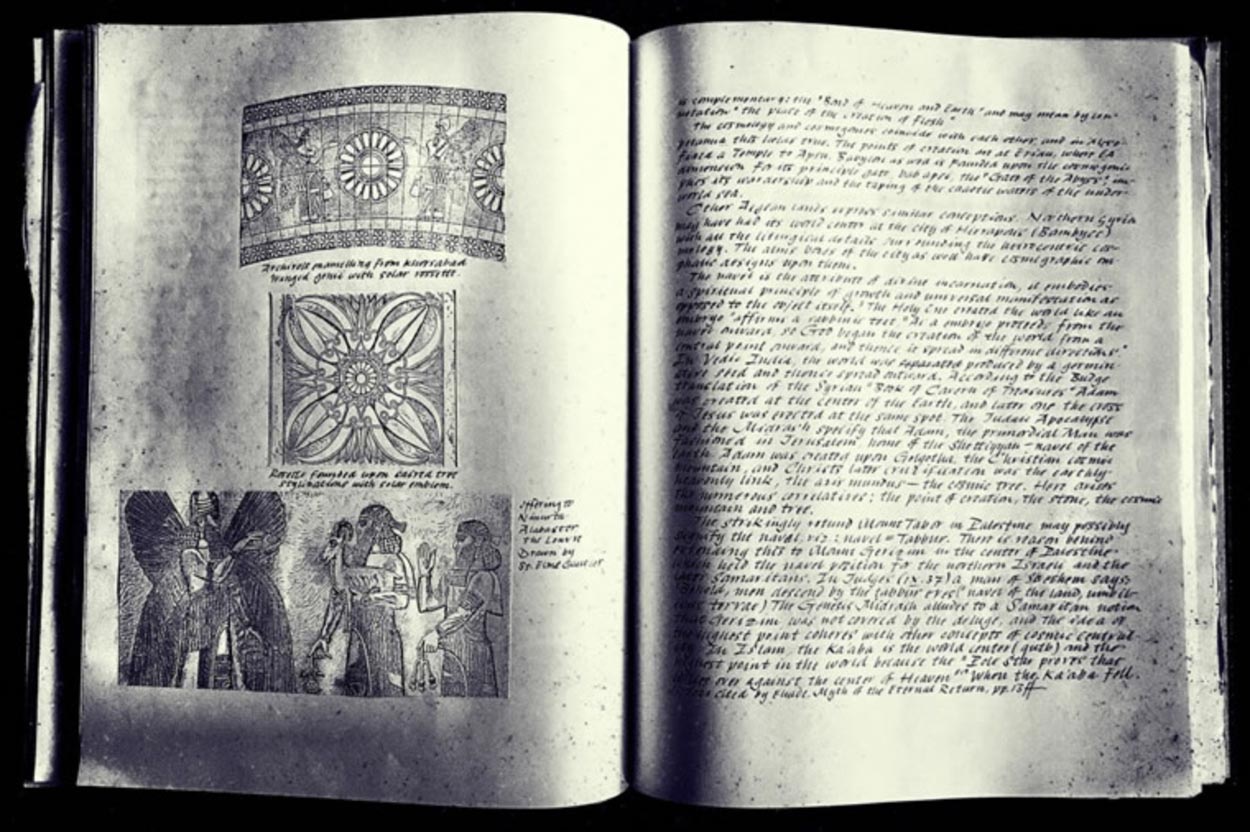 Archivolt enamelling from Khorsabad
Winged genii with solar rosette.
Rosette founded upon sacred tree
stylizations with solar emblem.
offering to
Alabaster
The Louvre
Drawn by
St. Elme Gautier
is complementary: the "Bond of Heaven and Earth" and may mean by con-
notation "the place of the creation of Flesh"
The cosmology and cosmogonies coincide with each other, and in Meso-
potamia this holds true. The points of creation are at Eridu, where Ea
a Temple to Apsu. Babylon as well is founded upon the cosmogonic
dimension for its principle gate, bab apsi, the "Gate of the Abyss," im-
plies its wardership and the taping of the chaotic waters of the under-
world sea.
Other Aegean lands similar conceptions. Northern Syria
may have had its world center at the city of Hierapolis (Bambyce)
with all the liturgical details surrounding the
The of the city as well have cosmographic om-
phalic designs upon them.
The navel is the attribute of divine incarnation, it embodies
a spiritual principle of growth and universal manifestation as
opposed to the object itself. "The Holy One created the world like an
embryo" affirms a rabbinic text. "As a embryo proceeds from the
navel onward, so God began the creation of the world from a
central point onward, and thence it spread in different directions"
In Vedic India, the world was produced by a germin-
ative seed and thence spread outward. According to the Budge
translation of the Syrian "Book of Cavern of Treasures" Adam
was created at the center of the Earth, and later one the cross
of Jesus was erected at the same spot. The Judaic Apocalypse
and the Midrash specify that Adam, the primordial Man was
fashioned in Jerusalem home of the – navel of the
Earth. Adam was created upon Golgotha, the Christian cosmic
mountain, and Christ's later crucification was the earthly-
heavenly link, the axis mundus – the cosmic tree. Here arises
the numerous correlatives: the point of creation, the stone, the cosmic
mountain and tree.
The strikingly rotund Mount Tabor in Palestine may possibly
signify the navel, viz: navel = Tabbur. There is reason behind
extending this to Mount Gerizim in the center of Palestine
which held the navel position for the northern Israeli and the
later Samaritans. In Judges (ix.37) a man of Shechem says:
Behold, men descend by the tabbur eres (navel of the land, umbili-
cus terrae) The Genesis Midrash alludes to a Samaritan notion
that Gerizim was not covered by the deluge, and the idea of
the highest point coheres with other concepts of cosmic central-
In Islam, the Ka'aba is the world center (qutb) and the
highest point in the world because the "Pole Star proves that
over against the center of Heaven" When the Ka'aba fell
cited by Eliade, Myth of the Eternal Return, pp. 13ff